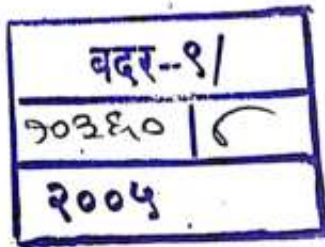 बदर--९/
१०३६० | ८
२००५